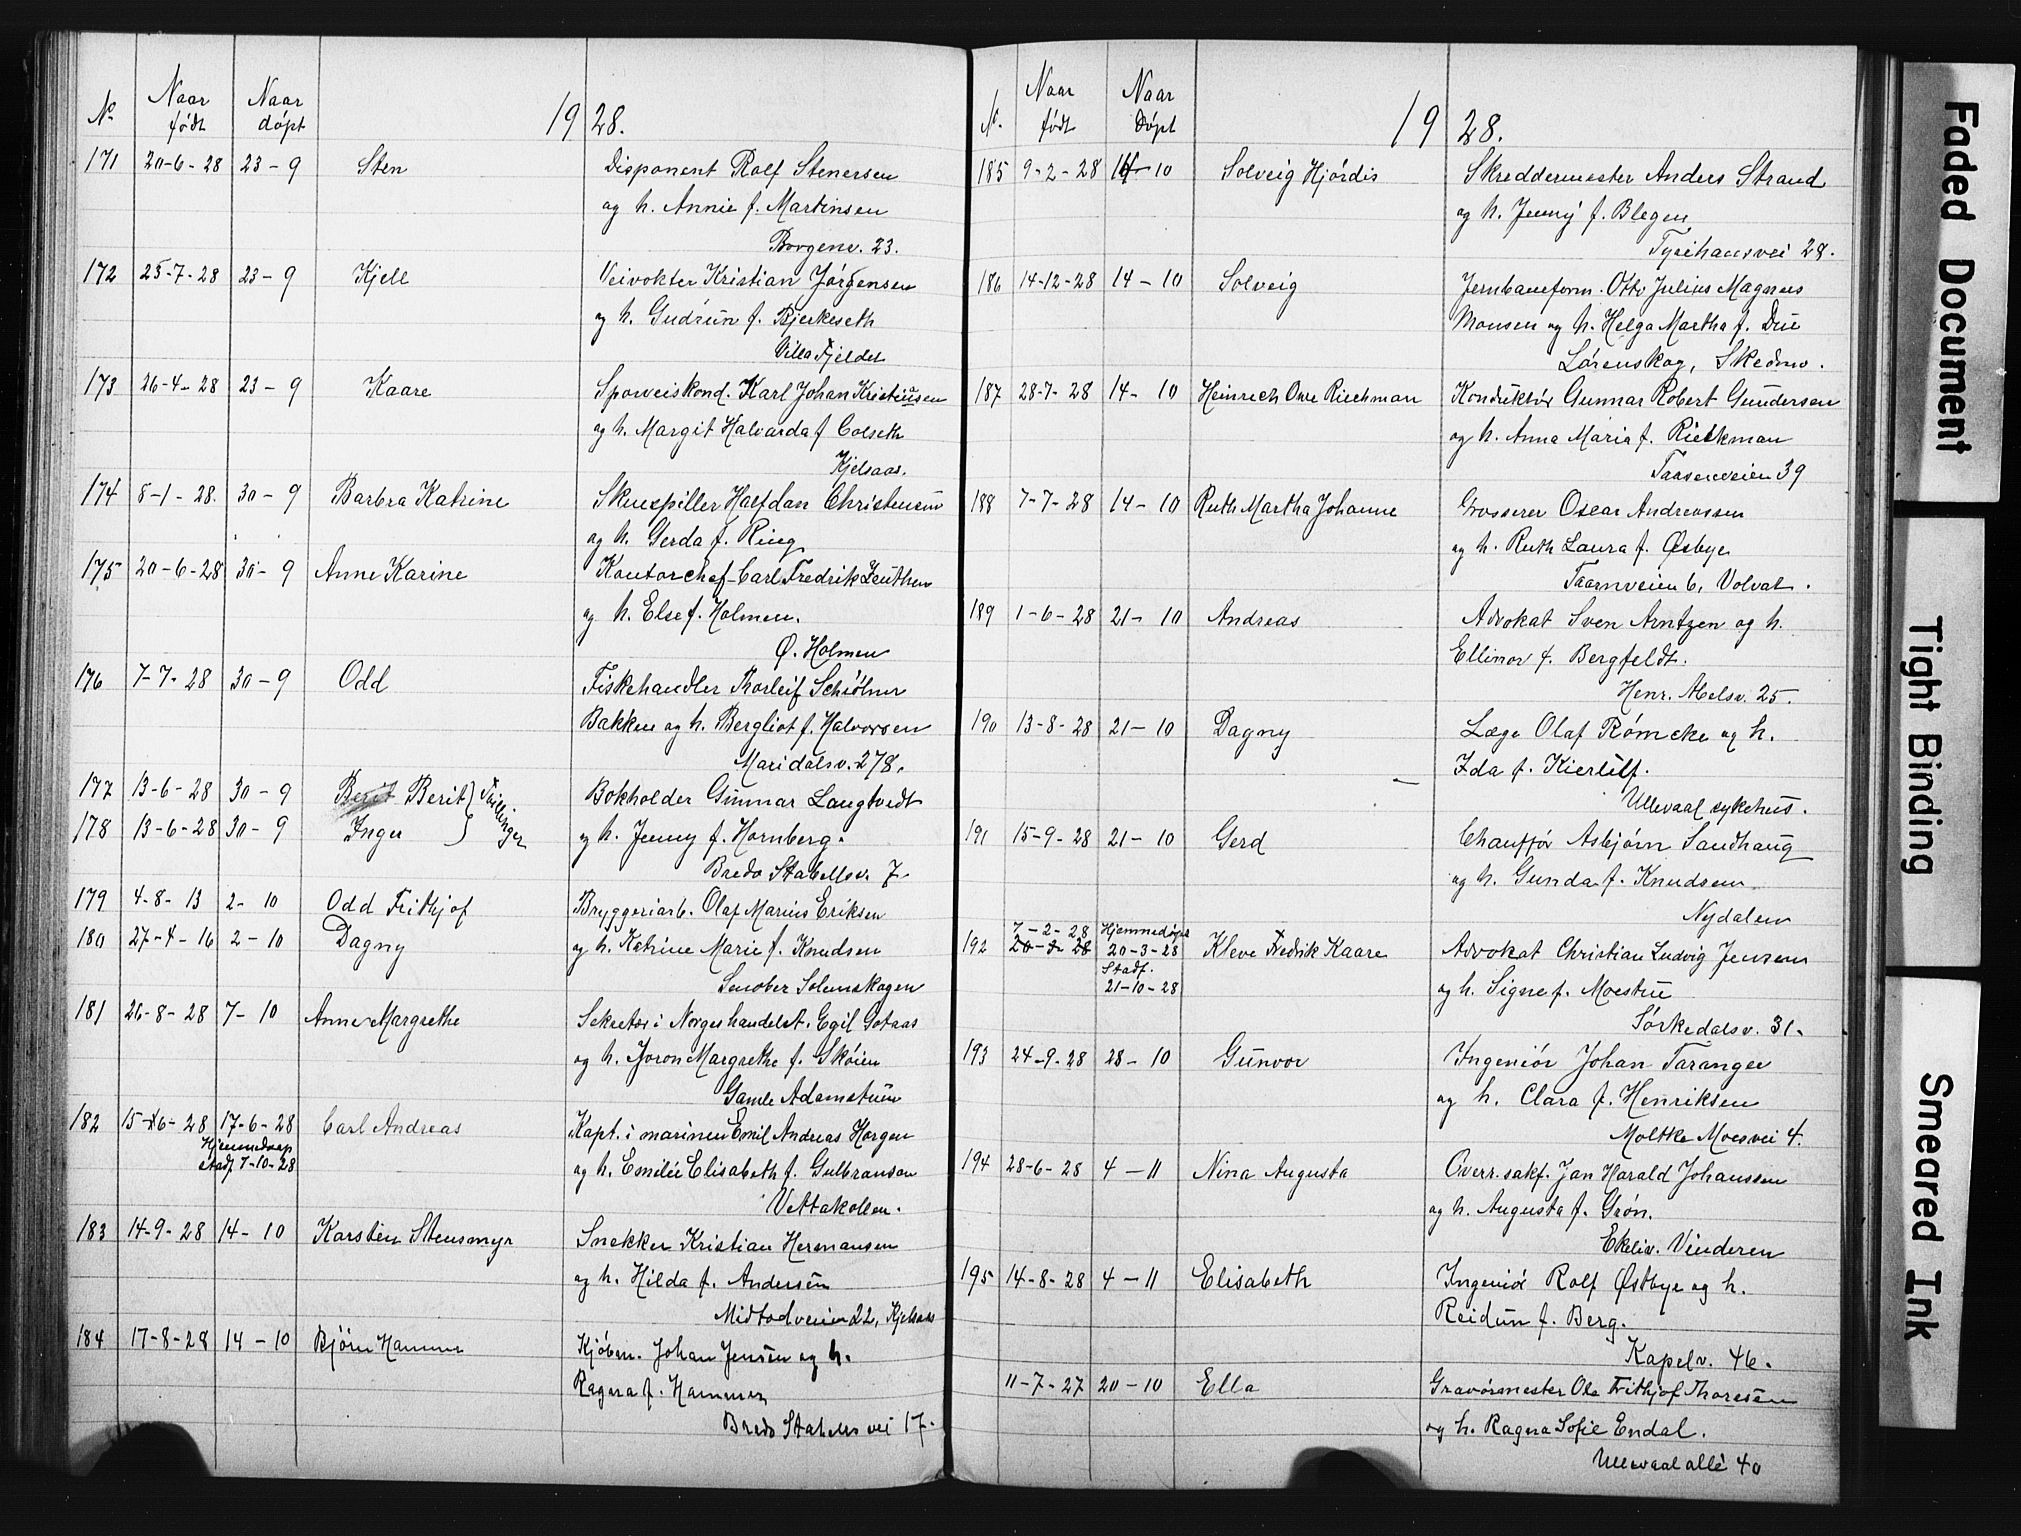 No Naar født Naar døpt 1928.
171 20-6-28 23-9 Sten Disponent Rolf Stenersen
og h. Annie f. Martinsen
Borgenv. 23.
172 25-7-28 23-9 Kjell Veivokter Kristian Jørgensen
og h. Gudrun f. Bjerkeseth
Villa Fjeldet
173 26-4-28 23-9 Kaare Sporveiskond. Karl Johan Kristiansen
og h. Margit Halvarda f. Colseth
Kjelsaas.
174 8-1-28. 30-9 Barbra Katrine Skuespiller Halfdan Christensen
og h. Gerda f. Ring
175 20-6-28 30-9 Anne Karine Kontorchef Carl Fredrik Zeuthen
og h. Else f. Holmen.
Ø. Holmen
176 7-7-28 30-9 Odd Fiskehandler Thorleif Schiølner
Bakken og h. Bergliot f. Halvorsen
Maridalsv. 278.
177 13-6-28 30-9 Berit Berit } Tvillinger Bokholder Gunnar Langtvedt
178 13-6-28 30-9 Inger } og h. Jenny f. Hornberg.
Bredo Stabellsv. 7.
179 4-8-13 2-10 Odd Frithjof Bryggeriarb. Olaf Marius Eriksen
180 27-4-16 2-10 Dagny og h. Katrine Marie f. Knudsen
Solemskogen
181 26-8-28 7-10 Anne Margrethe Sekretær i Norges handelst. Egil Gotaas
og h. Joron Margrethe f. Skøien
Gamle Adamstuen
182 15-6-28 17-6-28 Carl Andreas Kapt. i marinen Emil Andreas Horgen
Hjemmedøpt
stadf 7-10-28 og h. Emilie Elisabeth f. Gulbranson
Vettakollen.
183 14-9-28 14-10 Karsten Stensmyr Snekker Kristian Hermansen
og h. Hilda f. Andersen
Midtodveien 22, Kjelsaas
184 17-8-28 14-10 Bjørn Hammer Kjøbm. Johan Jensen og h.
Ragna f. Hammer
Bredo Stabells vei 17.
N. Naar født Naar Døpt 1928.
185 9-2-28 14-10 Solveig Hjørdis Skreddermester Anders Strand
og h. Jenny f. Blegen
Tyrihansvei 28.
186 14-12-28 14-10 Solveig Jernbaneform. Otto Julius Magnus
Monsen og h. Helga Martha f. Due
Lørenskog, Skedmo.
187 28-7-28 14-10 Heinrich Owe Rieckman Konduktør Gunnar Robert Gundersen
og h. Anna Maria f. Rieckman
Taasenveien 39
188 7-7-28 14-10 Ruth Martha Johanne Grosserer Oscar Andreassen
og h. Ruth Laura f. Østbye
Taarnveien 6, Volvat.
189 1-6-28 21-10 Andreas Advokat Sven Arntzen og h.
Ellinor f. Bergfeldt.
Henr. Abelsv. 25.
190 13-8-28 21-10 Dagny Læge Olaf Rømcke og h.
Ida f. Kierulf.
Ullevaal sykehus.
191 15-9-28 21-10 Gerd Chauffør Asbjørn Sandhaug
og h. Gunda f. Knudsen
Nydalen
7-2-28 Hjemmedøpt
192 20-3-28 20-3-28 Kleve Fredrik Kaare Advokat Christian Ludvig Jensen
Stadf.
21-10-28 og h. Signe f. Moestue
Sørkedalsv. 31.
193 24-9-28 28-10 Gunvor Ingeniør Johan Taranger
og h. Clara f. Henriksen
Moltke Moesvei 4.
194 28-6-28 4-11 Nina Augusta Overr.sakf. Jan Harald Johanssen
og h. Augusta f. Grøn.
Ekeliv. Vinderen
195 14-8-28 4-11 Elisabeth Ingeniør Rolf Østbye og h.
Reidun f. Berg.
Kapelv. 46.
11-7-27 20-10 Ella Gravørmester Ole Frithjof Thoresen
og h. Ragna Sofie Endal.
Ullevaal allé 40
Faded Document
Tight Binding
Smeared Ink